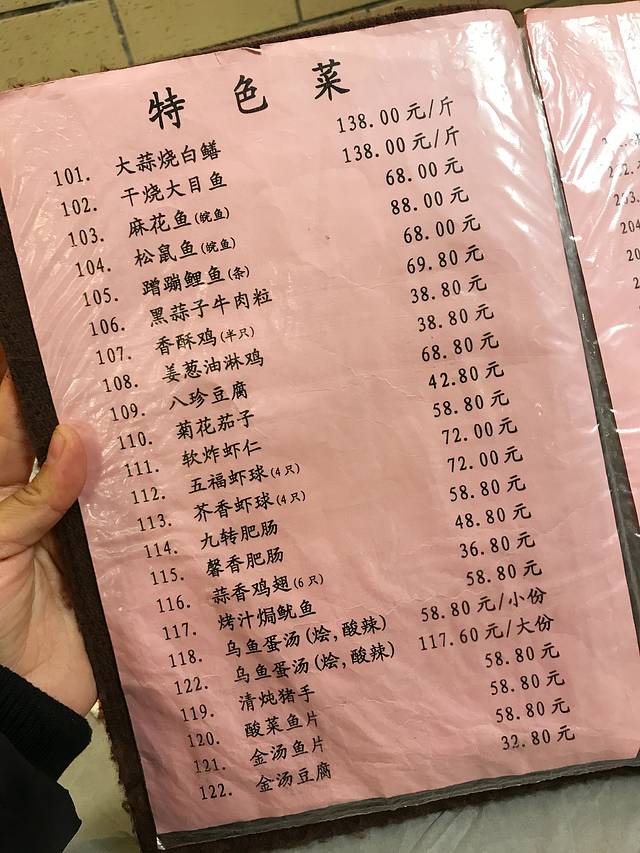 特色菜
101. 大蒜烧白鳝 138.00元/斤
102. 干烧大目鱼 138.00元/斤
103. 麻花鱼(鲩鱼) 68.00元
104. 松鼠鱼(鲩鱼) 88.00元
105. 蹭蹦鲤鱼(条) 68.00元
106. 黑蒜子牛肉粒 69.80元
107. 香酥鸡(半只) 38.80元
108. 姜葱油淋鸡 38.80元
109. 八珍豆腐 68.80元
110. 菊花茄子 42.80元
111. 软炸虾仁 58.80元
112. 五福虾球(4只) 72.00元
113. 芥香虾球(4只) 72.00元
114. 九转肥肠 58.80元
115. 馨香肥肠 48.80元
116. 蒜香鸡翅(6只) 36.80元
117. 烤汁焗鱿鱼 58.80元
118. 乌鱼蛋汤(烩,酸辣) 58.80元/小份
122. 乌鱼蛋汤(烩,酸辣) 117.60元/大份
119. 清炖猪手 58.80元
120. 酸菜鱼片 58.80元
121. 金汤鱼片 58.80元
122. 金汤豆腐 32.80元
204